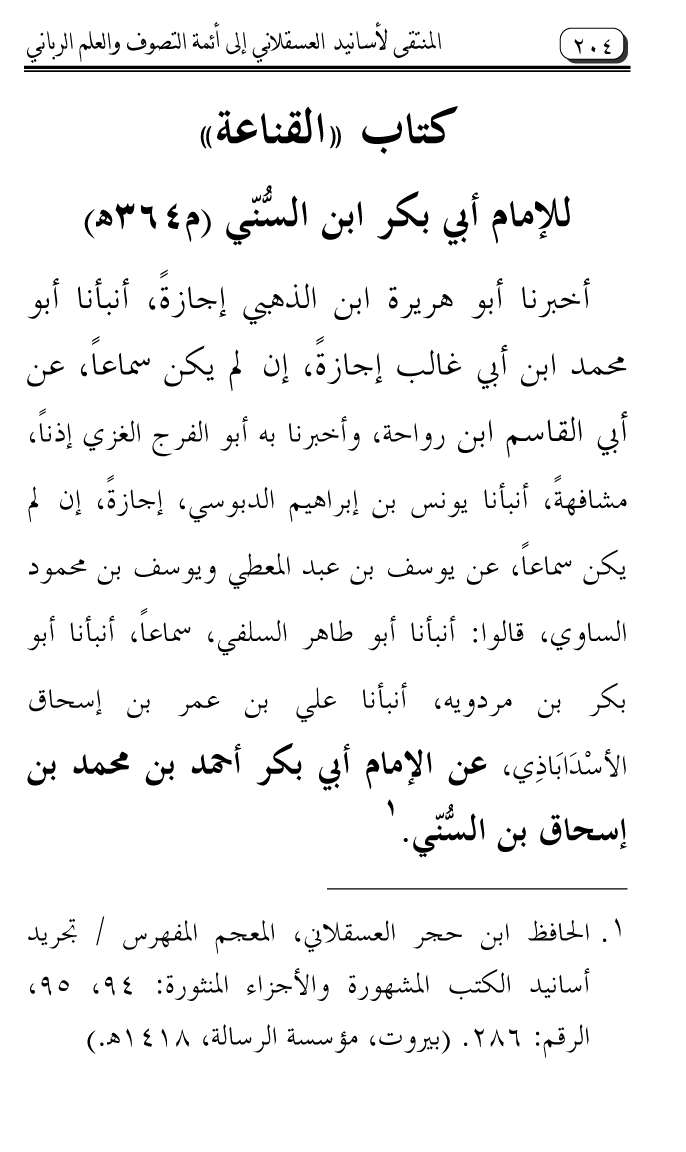 ٢٠٤ المنتقى لأسانيد العسقلاني إلى أئمة التصوف والعلم الرباني
كتاب «القناعة»
للإمام أبي بكر ابن السُّنّي (م٣٦٤ه)
أخبرنا أبو هريرة ابن الذهبي إجازةً، أنبأنا أبو
محمد ابن أبي غالب إجازةً، إن لم يكن سماعاً، عن
أبي القاسم ابن رواحة، وأخبرنا به أبو الفرج الغزي إذناً،
مشافهةً، أنبأنا يونس بن إبراهيم الدبوسي، إجازةً، إن لم
يكن سماعاً، عن يوسف بن عبد المعطي ويوسف بن محمود
الساوي، قالوا: أنبأنا أبو طاهر السلفي، سماعاً، أنبأنا أبو
بكر بن مردويه، أنبأنا علي بن عمر بن إسحاق
الأسْدَابَاذِي، عن الإمام أبي بكر أحمد بن محمد بن
إسحاق بن السُّنّي.١
١. الحافظ ابن حجر العسقلاني، المعجم المفهرس / تجريد
أسانيد الكتب المشهورة والأجزاء المنثورة: ٩٤، ٩٥،
الرقم: ٢٨٦. (بيروت، مؤسسة الرسالة، ١٤١٨ه.)